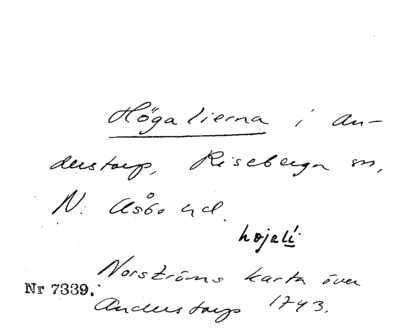 Höga lierna i An-
derstorp, Riseberga sn,
N. Åsbo hd.
hojali
Norströms karta över
Nr 7339.
Anderstorp 1743.